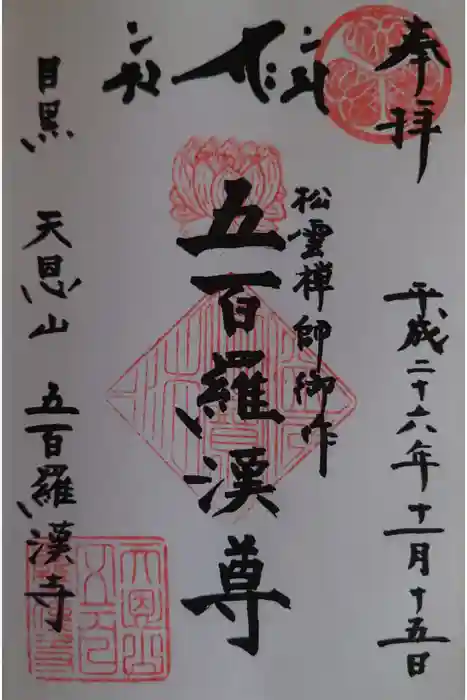 奉拝
平成二十六年十一月十五日
松雲禅師御作
五百羅漢尊
目黒 天恩山 五百羅漢寺